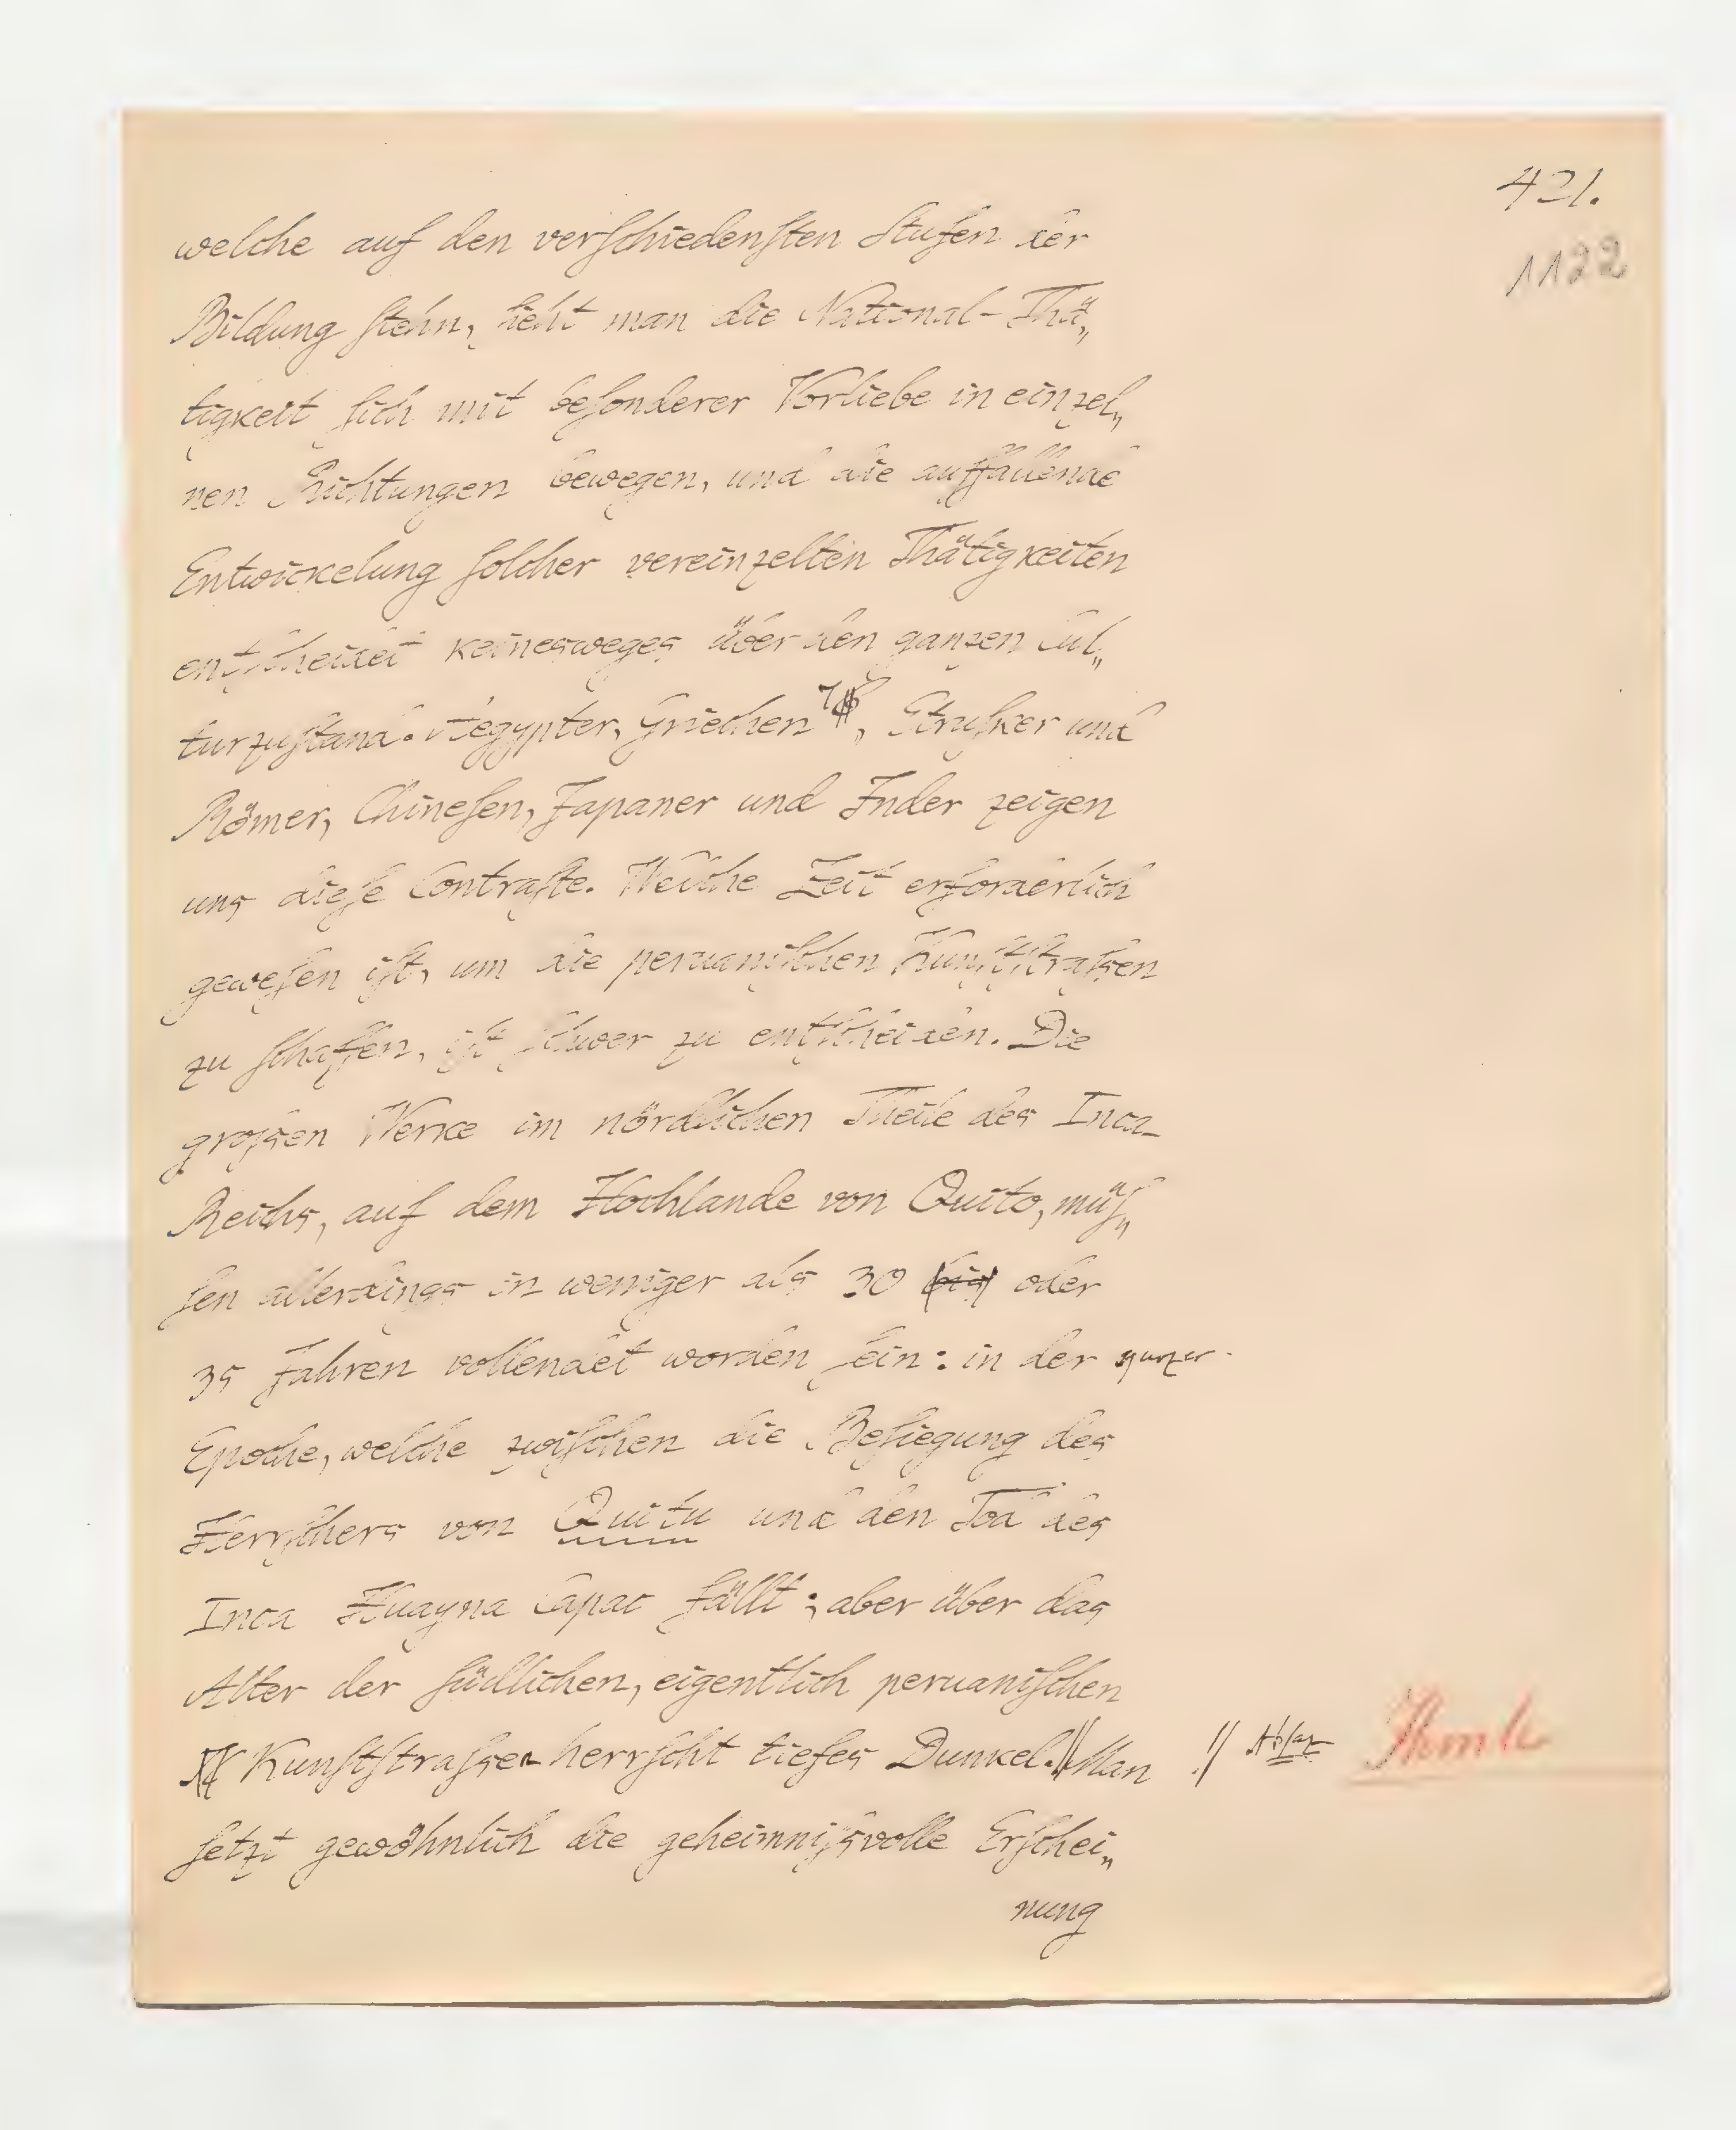 421.
1122
welche auf den verſchiedenſten Stufen der
Bildung ſtehn, ſieht man die National-Thä„
tigkeit ſich mit beſonderer Vorliebe in einzel„
nen Richtungen bewegen, und die auffallende
Entwickelung ſolcher vereinzelten Thätigkeiten
entſcheidet keinesweges über den ganzen Cul„
turzuſtand. Aegypter, Griechen, Etruſker und
Römer, Chineſen, Japaner und Inder zeigen
uns dieſe Contraſte. Welche Zeit erforderlich
geweſen iſt, um die peruaniſchen Kunſtſtraſsen
zu ſchaffen, iſt ſchwer zu entſcheiden. Die
groſsen Werke im nördlichen Theile des Inca-
Reichs, auf dem Hochlande von Quito, müſ„
ſen allerdings in weniger als 30 bis oder
35 Jahren vollendet worden ſein: in der kurzen
Epoche, welche zwiſchen die Beſiegung des
Herrſchers von Quitu und den Tod des
Inca Huayna Capac fällt; aber über das
Alter der ſüdlichen, eigentlich peruaniſchen
Kunſtſtraſsen herrſcht tiefes Dunkel.// Man // Abſaz
ſetzt gewöhnlich die geheimniſsvolle Erſchei„
nung